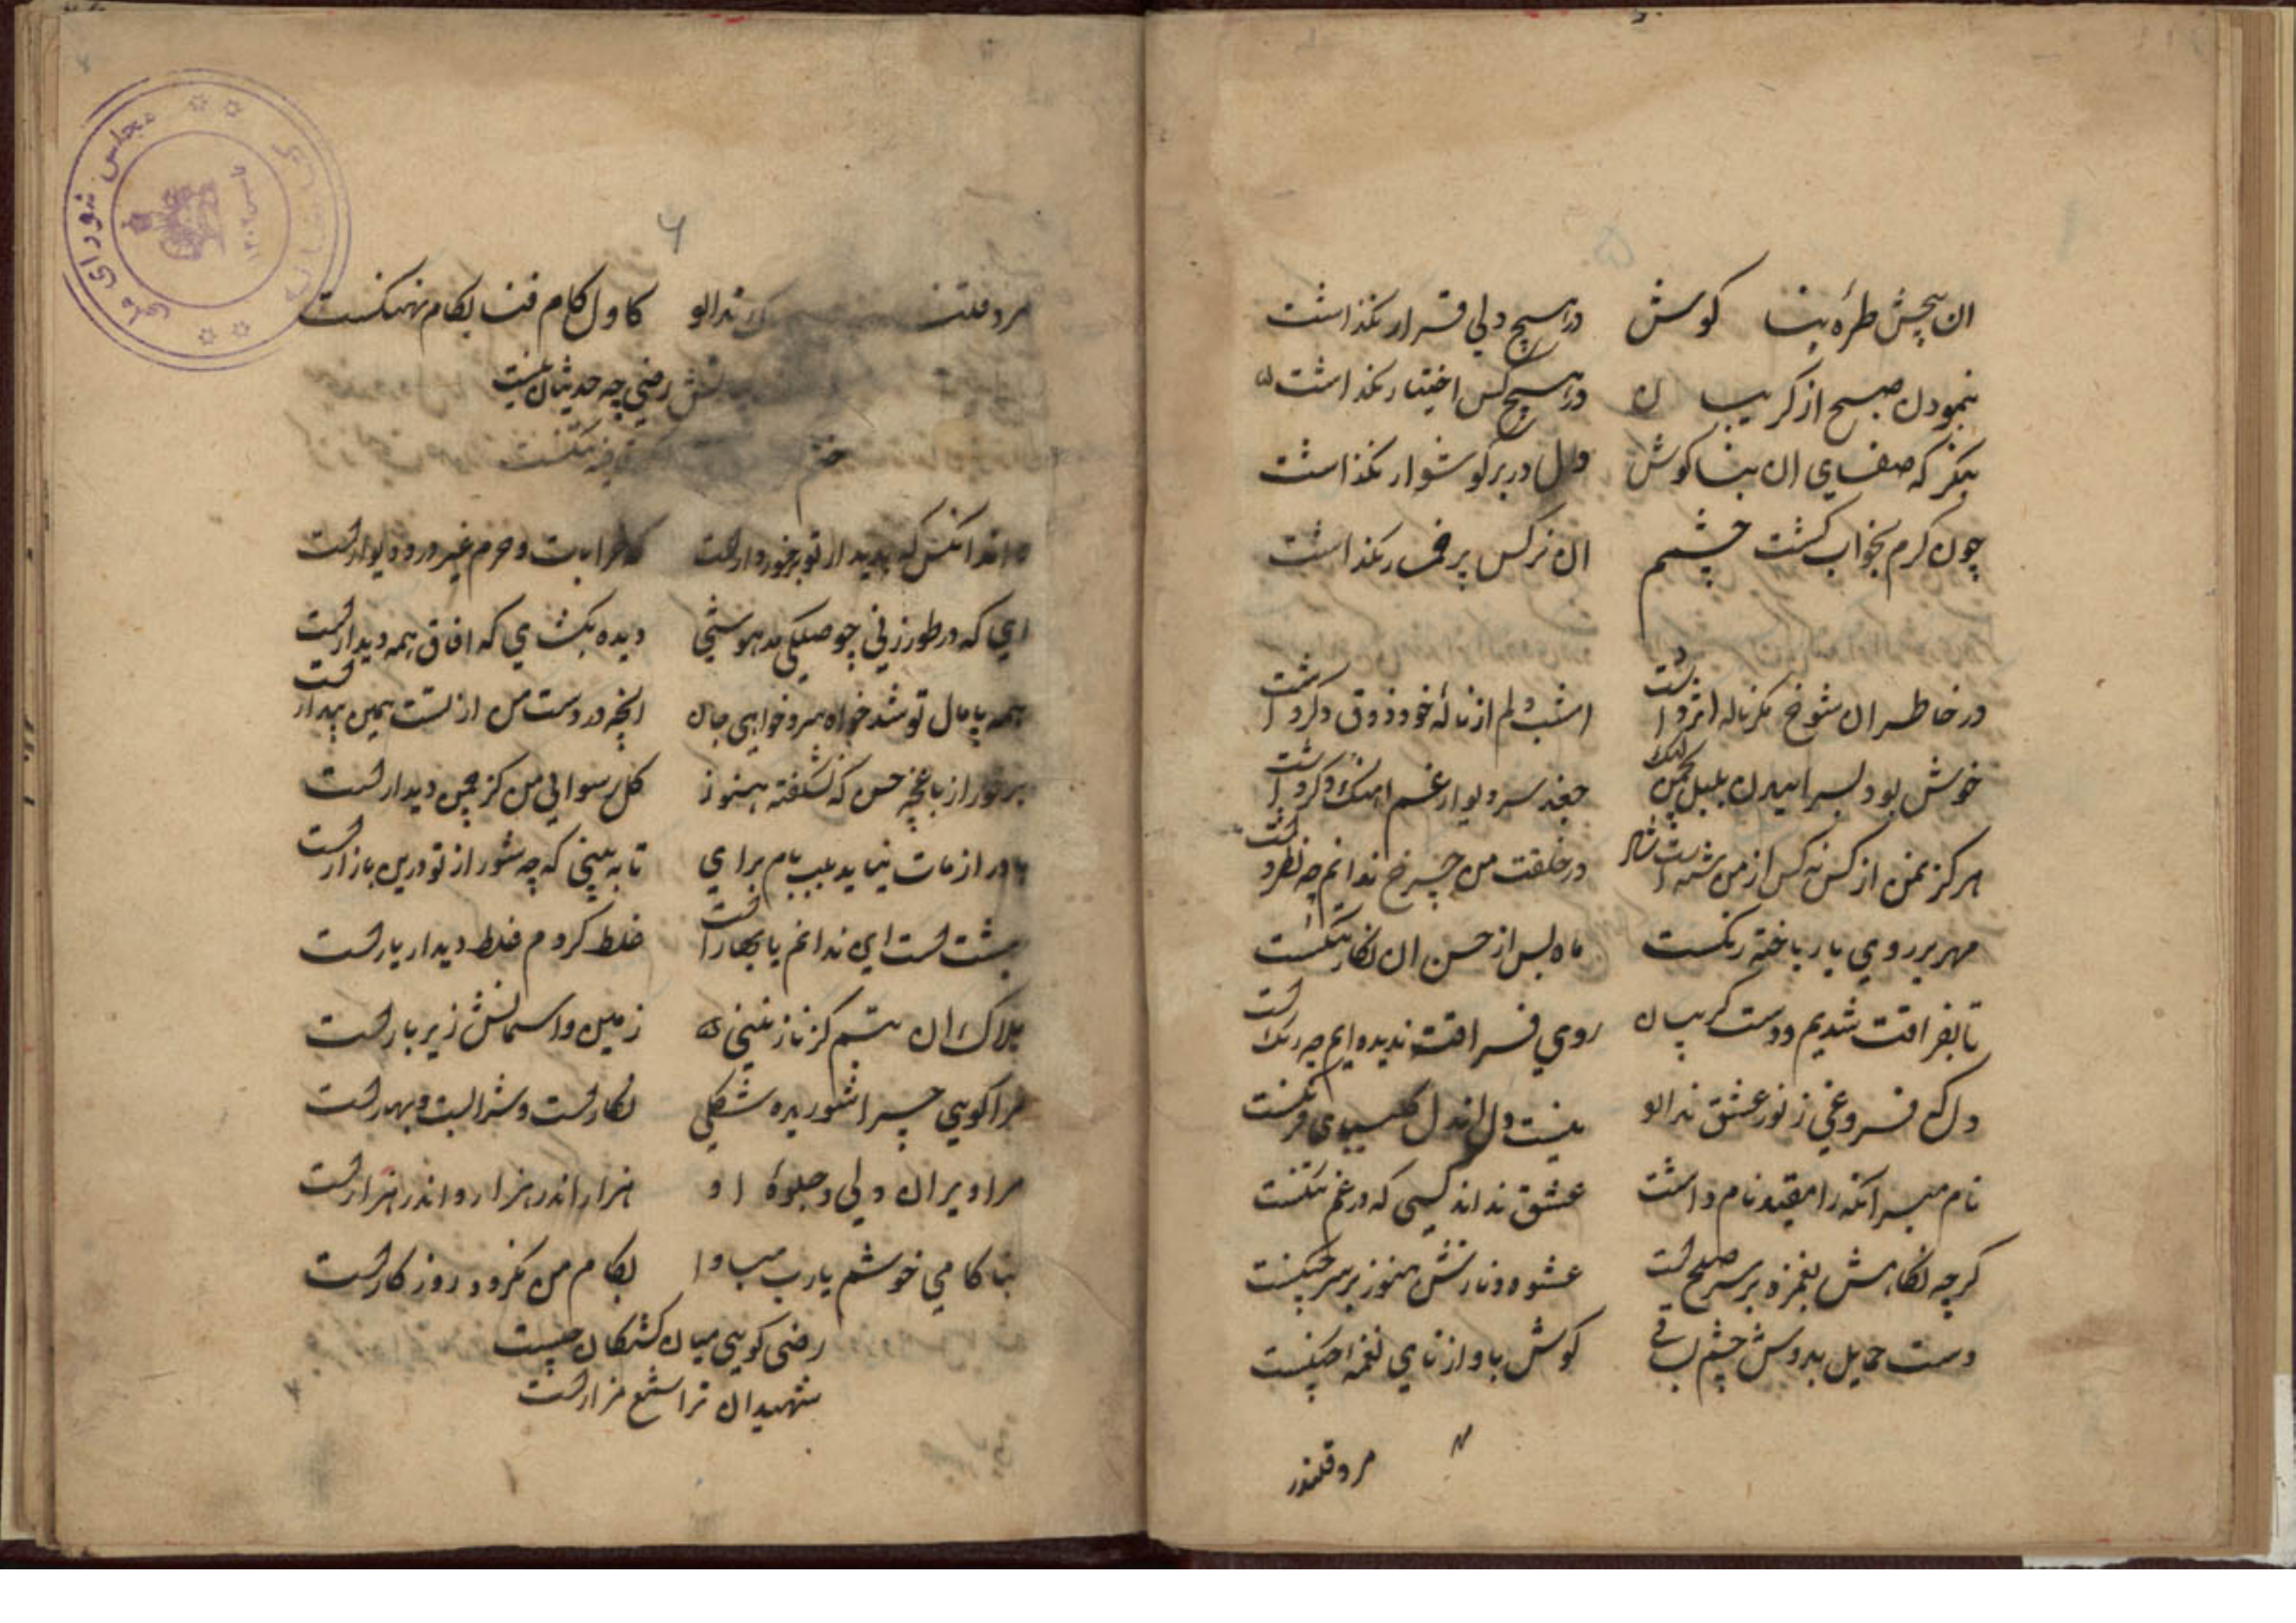 ۵
ان پیچش طرهٔ بنا کوش در هیچ دلی قرار نگذاشت
بنمودن صبح از کریبان در هیچ کس اختیار نگذاشت
بنکر که صفای ان بنا کوش دل در بر کوشوار نگذاشت
چون کرم بخواب کشت چشم ان نرکس پر خمار نگذاشت
در خاطر ان شوخ مکر ناله اثر داشت امشب دلم از نالهٔ خود ذوق دکر داشت
خوش بود لبراییدن بلبل بچمن لیک جغد سر دیوار غم اهنک دکر داشت
هرکز نه من از کس نه کس از من شده شاد در خلقت من چرخ ندانم چه نظر داشت
مهر بر روی یار باخته رنکست ماه بس از حسن ان نکار بتنکست
تا بفراقت شدیم و دست کریبان روی فراقت ندیده ایم چه رنکست
دل که فروغی ز نور عشق ندارد نیست دل اندل کلیسیای فرنکست
نام مبر انکه را مقید نام داشت عشق نداند کسی که در غم ننکست
کرچه نکاهش بغمزه بر سر صلح است عشوه و نازش هنوز بر سر جنکست
دست حمایل بدوش چشم بساقی کوش باواز نای نغمه چنکست
مرد قلندر
۶
مرد قلند ندارد کاول کام فنا بکام نهنکست
رضی چه حدیثان نیست
داند انکس که بدیدار تو برخوردارست که خرابات و حرم غیر در و دیوارست
ای که در طور زنی چو صیحکی مدهوشی دیده بکشای که افاق همه دیدارست
همه پامال تو شد خواه سر و خواهی جان انچه در دست من از تست همین پندارست
برخور از باغچه حسن که نشکفته هنوز کل رسوایی من کز چمن دیدارست
باور از مات نیاید بلب بام برای تا به بینی که چه شور از تو درین بازارست
بهشت است این ندانم یا بهارست غلط کردم غلط دیدار یارست
هلاک ان تبسم کز نازنینی زمین و اسمانش زیر بارست
مرا کویی چرا شوریده شکلی نکارست و شرابست و بهارست
مرا ویران دلی و جلوهٔ او هزار اندر هزار و اندر هزارست
بنا کامی خوشم یارب مبادا بکام من نکردد روزکارست
رضی کویی میان کشتکان چیست
شهیدان ترا شمع مزارست
مجلس شورای ملی